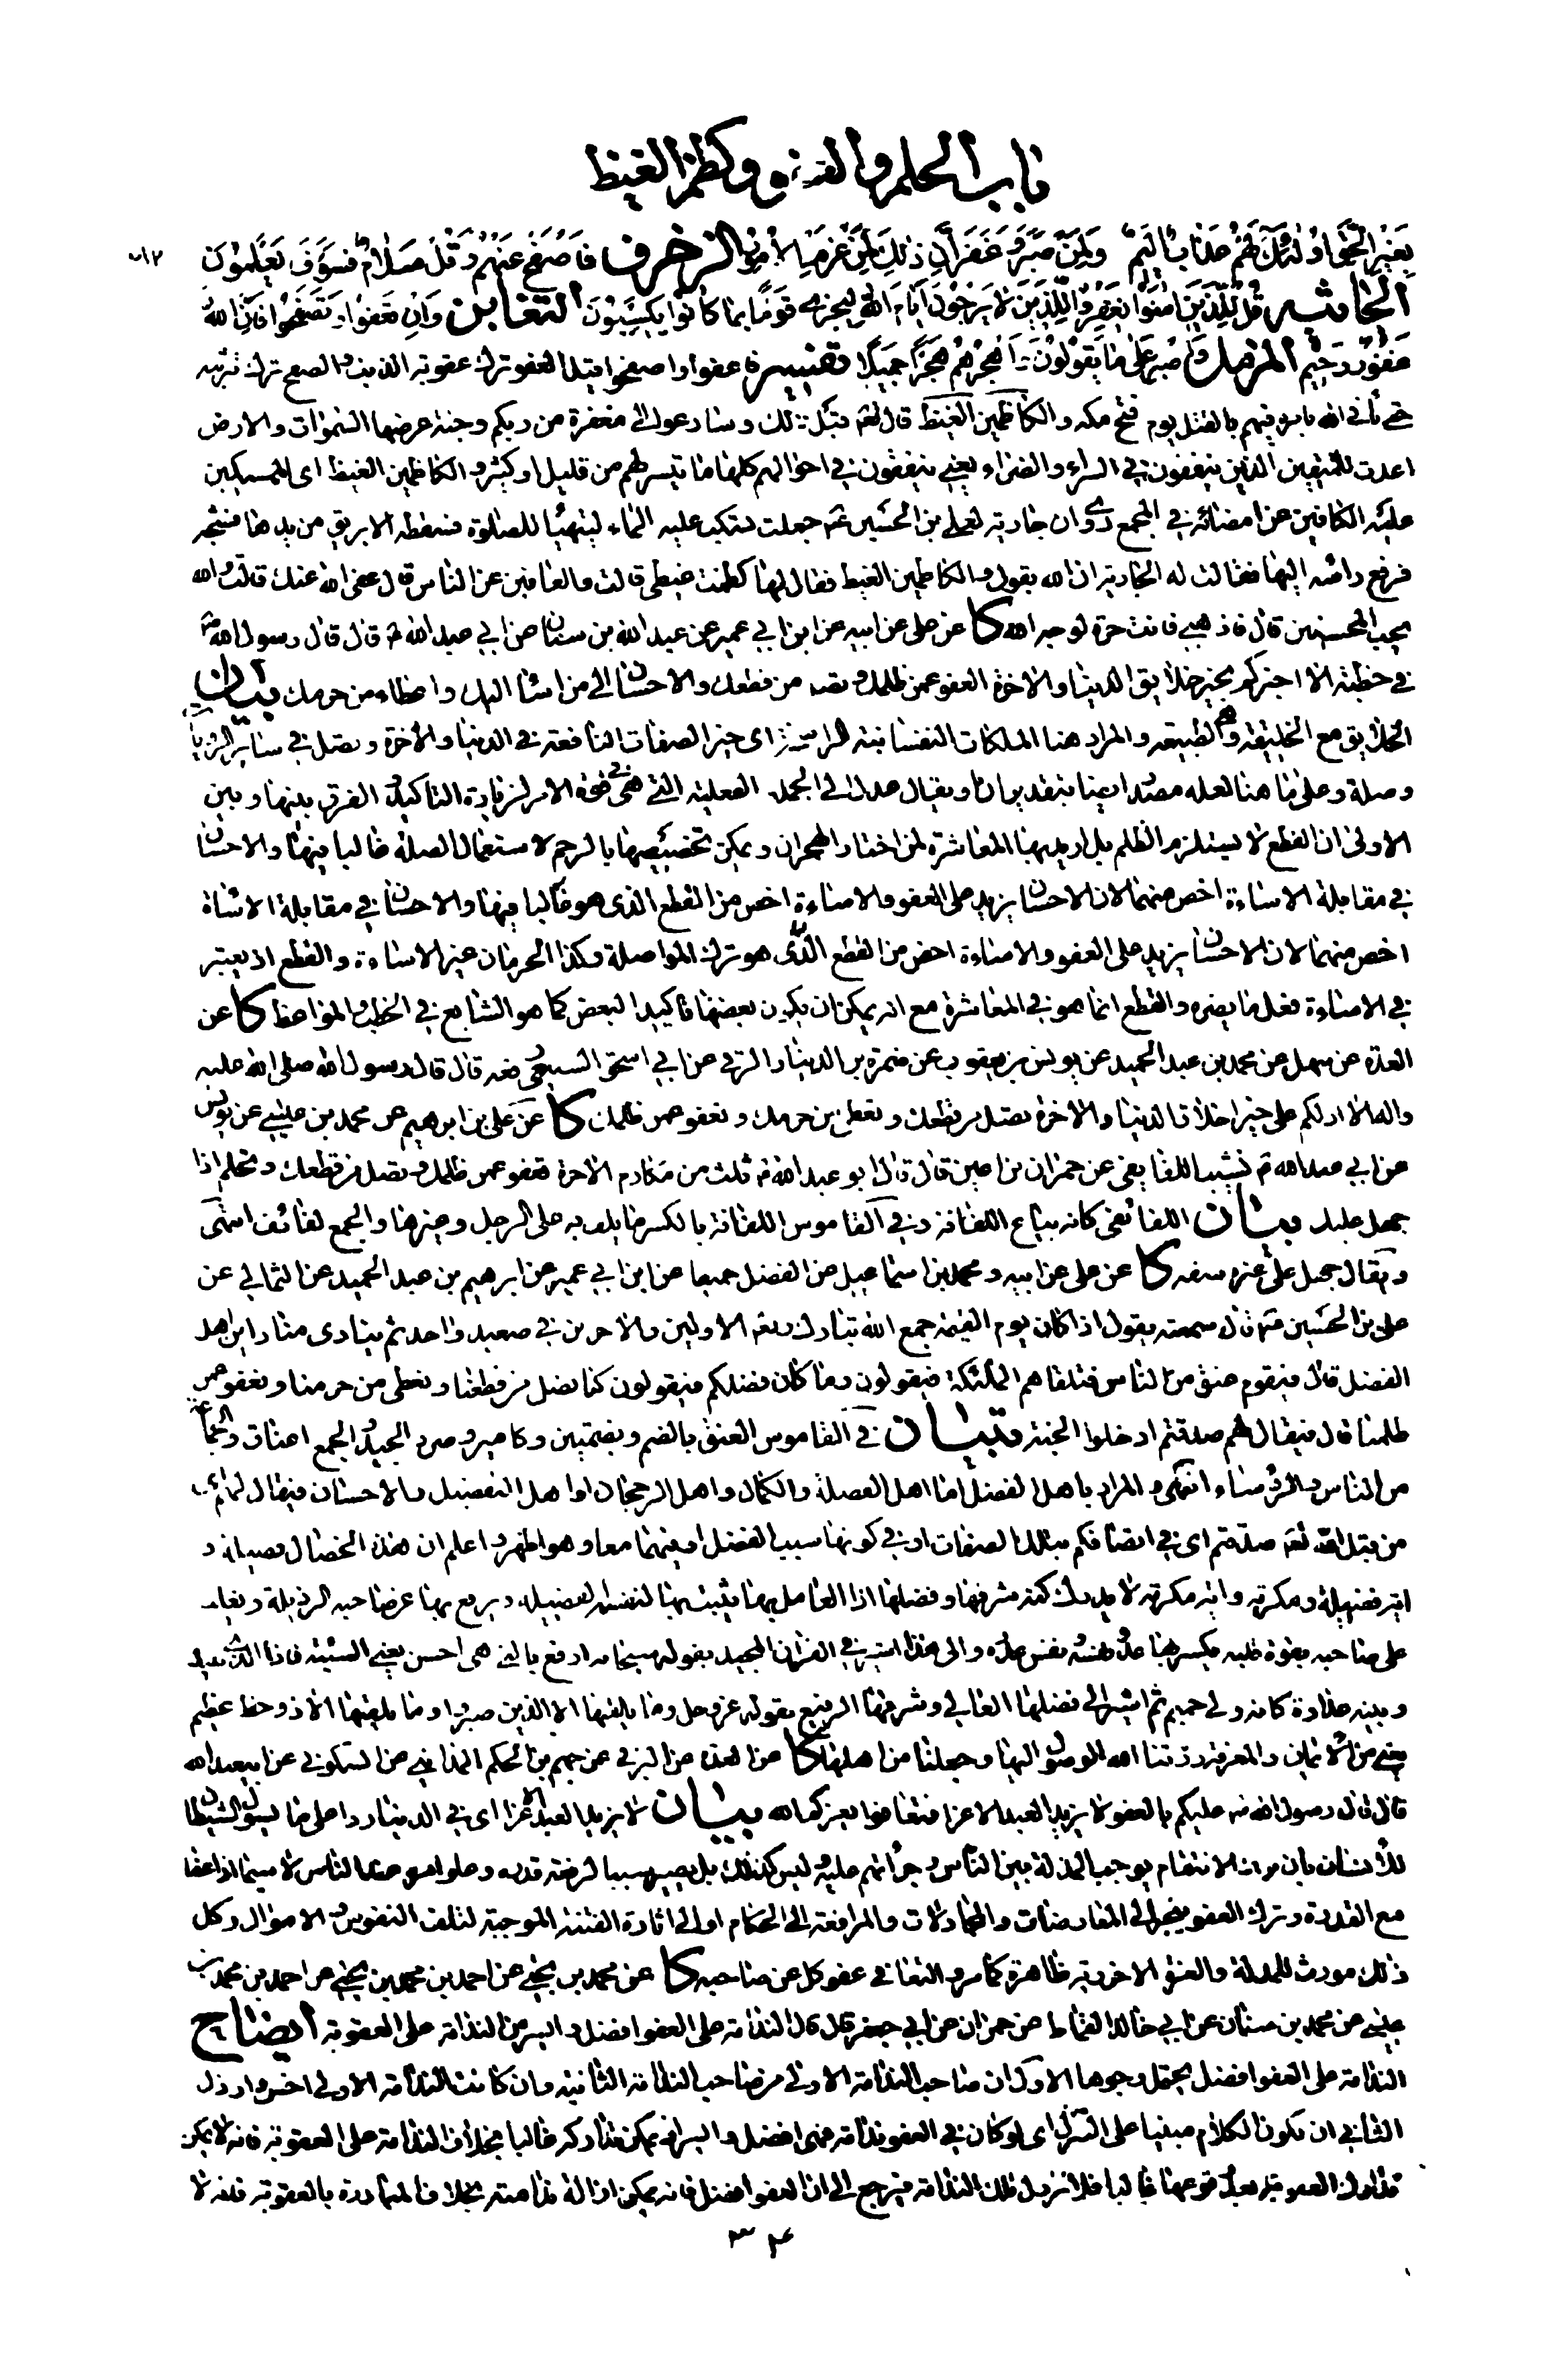 باب الحلم والعفو وكظم الغيظ
بِغَيْرِ الْحَقِّ اُولٰئِكَ لَهُمْ عَذَابٌ اَلِيمٌ وَلَمَنْ صَبَرَ وَغَفَرَ اِنَّ ذٰلِكَ لَمِنْ عَزْمِ الْاُمُورِ الزخرف فَاصْفَحْ عَنْهُمْ وَقُلْ سَلَامٌ فَسَوْفَ يَعْلَمُونَ
الجاثيه قُلْ لِلَّذِينَ اٰمَنُوا يَغْفِرُوا لِلَّذِينَ لَا يَرْجُونَ اَيَّامَ اللهِ لِيَجْزِىَ قَوْمًا بِمَا كَانُوا يَكْسِبُونَ التغابن وَاِنْ تَعْفُوا وَتَصْفَحُوا فَاِنَّ اللهَ
غَفُورٌ رَحِيمٌ المزمل وَاصْبِرْ عَلٰى مَا يَقُولُونَ وَاهْجُرْهُمْ هَجْرًا جَمِيلًا تفسيره عفوا واصفحوا قيل العفو ترك عقوبة الذنب والصفح ترك تثريبه
حتى يأتى الله بامره فيهم بالقتل يوم فتح مكه والكاظمين الغيظ قال تعم قبل ذلك وسارعوا الى مغفرة من ربكم وجنة عرضها السموات والارض
اعدت للمتقين الذين ينفقون فى السراء والضراء يعنى ينفقون فى احوالهم كلها ما تيسر لهم من قليل او كثير والكاظمين الغيظ اى الممسكين
عليه الكافين عن امضائه فى المجمع روى ان جارية لعلى بن الحسين عم جعلت تسكب عليه الماء ليتهيأ للصلوة فسقط الابريق من يدها فشجه
فرفع راسه اليها فقالت له الجارية ان الله يقول والكاظمين الغيظ فقال لها كظمت غيظى قالت والعافين عن الناس قال عفى الله عنك قالت والله
يحب المحسنين قال فاذهبى فانت حرة لوجه الله كا عن على عن ابيه عن ابن ابى عمير عن عبد الله بن سنان عن ابى عبد الله ع قال قال رسول الله ص
فى خطبته الا اخبركم بخير خلايق الدنيا والاخرة العفو عمن ظلمك وتصل من قطعك والاحسان الى من اساء اليك واعطاء من حرمك بيان
الخلايق جمع الخليقة وهى الطبيعه والمراد هنا الملكات النفسانية الراسخة اى خير الصفات النافعة فى الدنيا والاخرة وتصل فى ساير الروايات
وصلة وعلى ما هنا لعله مصدر ايضا بتقدير ان او يقال عدل الى الجملة الفعلية التى هى فى قوة الامر لزيادة التاكيد والفرق بينها وبين
الاولى ان القطع لا يستلزم الظلم بل اريد بها المعاشرة لمن اختار الهجران ويمكن تخصيصها بالرحم لاستعمال الصلة غالبا فيها والاحسان
فى مقابلة الاساءة اخص منهما لان الاحسان يزيد على العفو والاساءة اخص من القطع الذى هو غالبا فيها والاحسان فى مقابلة الاساة
اخص منهما لان الاحسان يزيد على العفو والاساءة اخص من القطع الذى هو ترك المواصلة وكذا الحرمان غير الاساءة والقطع اذ يعتبر
فى الاساءة فعل ما يضره والقطع انما هو فى المعاشرة مع انه يمكن ان يكون بعضها تاكيدا لبعض كما هو الشايع فى الخطب والمواعظ كا عن
العدة عن سهل عن محمد بن عبد الحميد عن يونس بن يعقوب عن غرة بن الدينار الرقى عن ابى اسحق السبيعى رفعه قال قال رسول الله صلى الله عليه
واله الا ادلكم على خير اخلاق الدنيا والاخرة تصل من قطعك وتعطى من حرمك وتعفو عمن ظلمك كا عن على بن ابرهيم عن محمد بن عيسى عن يونس
عن ابى عبد الله ع نشيب اللفايفى عن حمران بن اعين قال قال ابو عبد الله ع ثلث من مكارم الاخرة تعفو عمن ظلمك وتصل من قطعك وتحلم اذا
جهل عليك بيان اللفائفى كانه بياع اللفافة وفى القاموس اللفافة بالكسر ما يلف به على الرجل وغيرها والجمع لفائف انتهى
ويقال جهل على غيره سفه كا عن على عن ابيه ومحمد بن اسماعيل عن الفضل جميعا عن ابن ابى عمير عن ابرهيم بن عبد الحميد عن الثمالى عن
على بن الحسين ع قال سمعته يقول اذا كان يوم القيمة جمع الله تبارك وتعم الاولين والاخرين فى صعيد واحد ثم ينادى مناد اين اهل
الفضل قال فيقوم عنق من الناس فتلقاهم الملئكة فيقولون وما كان فضلكم فيقولون كنا نصل من قطعنا ونعطى من حرمنا ونعفو عمن
ظلمنا قال فيقال لهم صدقتم ادخلوا الجنة بيان فى القاموس العنق بالضم وبضمتين وكامير وصرد الجيد والجمع اعناق والجماعة
من الناس والرؤساء انتهى والمراد باهل الفضل اما اهل الفضيلة والكمال واهل الرجحان او اهل التفضيل والاحسان فيقال لهم اى
من قبل الله تعم صدقتم اى فى اتصافكم بتلك الصفات او فى كونها سبب الفضل او فيهما معا وهو اظهر واعلم ان هذه الخصال فضيلة و
اية فضيلة ومكرمة واية مكرمة لا يدرك كنه شرفها وفضلها اذ العامل بها يثبت بها لنفسه الفضيلة ويرفع بها عن صاحبه الرذيلة ويغلب
على صاحبه بقوة قلبه يكسر بها عدو نفسه ونفس عدوه والى هذا اشير فى القران المجيد بقوله سبحانه ادفع بالتى هى احسن يعنى السيئة فاذا الذى بينك
وبينه عداوة كانه ولى حميم ثم اشير الى فضلها العالى وشرفها الرفيع بقوله عز وجل وما يلقيها الا الذين صبروا وما يلقيها الا ذو حظ عظيم
يعنى من الايمان والمعرفة رزقنا الله الوصول اليها وجعلنا من اهلها كا عن العدة عن البرقى عن جهم بن الحكم المداينى عن السكونى عن ابى عبد الله
قال قال رسول الله ص عليكم بالعفو لا يزيد العبد الا عزا فتعافوا يعزكم الله بيان لا يزيد العبد الا عزا اى فى الدنيا ردا على ما يسول الشيطان
للانسان بان ترك الانتقام يوجب المذلة بين الناس وجراتهم عليه وليس كذلك بل يصير سببا لرفعة قدره وعلو امره عند الناس لا سيما اذا عفا
مع القدرة وترك العفو ينجر الى المعارضات والمجادلات والمرافعة الى الحكام او الى اثارة الفتنة الموجبة لتلف النفوس والاموال وكل
ذلك مورث للمذلة والعزة الاخروية ظاهرة كما مر والتعافى عفو كل عن صاحبه كا عن محمد بن يحيى عن احمد بن محمد بن يحيى عن احمد بن محمد بن
عيسى عن محمد بن سنان عن ابى خالد القماط عن حمران عن ابى جعفر قال قال الندامة على العفو افضل وايسر من الندامة على العقوبة ايضاح
الندامة على العفو افضل يحتمل وجوها الاول ان صاحب الندامة الاولى من صاحب الندامة الثانية وان كانت الندامة الاولى اخس وارذل
الثانى ان تكون الكلام مبنيا على التنزل اى لو كان فى العفو ندامة فهى افضل وايسر اذ يمكن تداركه غالبا بخلاف الندامة على العقوبة فانه لا يمكن
تدارك العقوبة بعد وقوعها غالبا فلا تزول تلك الندامة فيرجع الى ان العفو افضل فانه يمكن ازالة ندامته بخلاف المبادرة بالعقوبة فانه لا